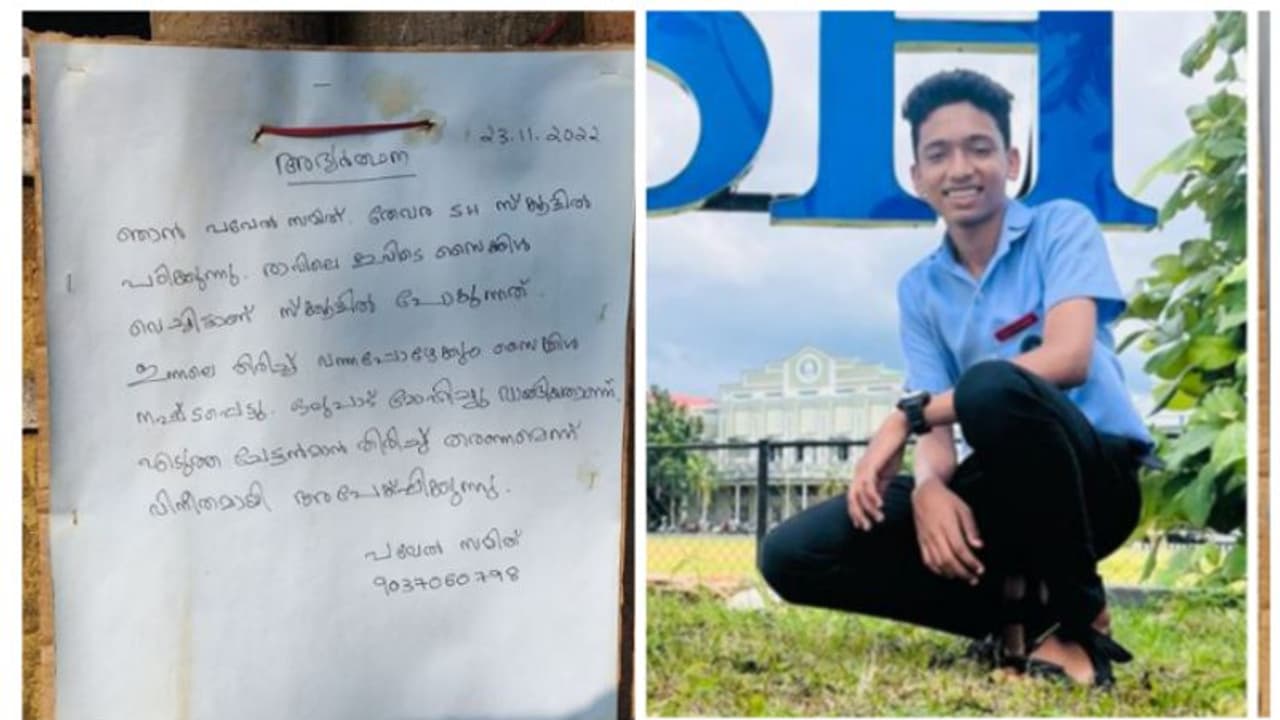 23.11.2022
അഭ്യർത്ഥന
ഞാൻ പവേൽ സമിത്. തേവര SH സ്കൂളിൽ
പഠിക്കുന്നു. രാവിലെ ഇവിടെ സൈക്കിൾ
വെച്ചിട്ടാണ് സ്കൂളിൽ പോകുന്നത്.
ഇന്നലെ തിരിച്ച് വന്നപ്പോഴേക്കും സൈക്കിൾ
നഷ്ടപ്പെട്ടു. ഒരുപാട് മോഹിച്ചു വാങ്ങിയതാണ്.
എടുത്ത ചേട്ടൻമാർ തിരിച്ച് തരണമെന്ന്
വിനീതമായി അപേക്ഷിക്കുന്നു.
പവേൽ സമിത്
9037060798
SH